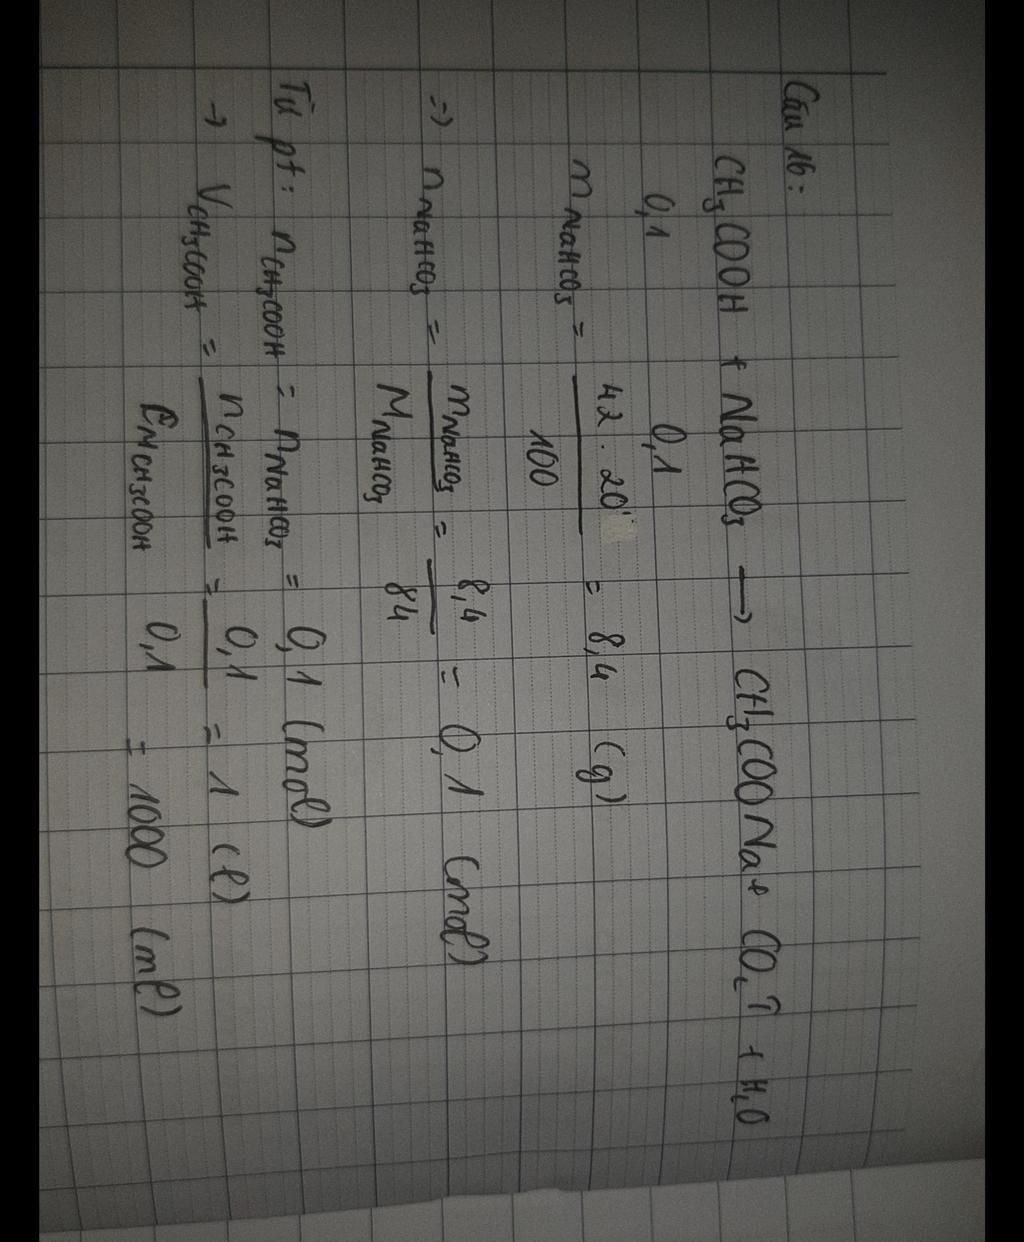 Câu 16:
CH₃COOH + NaHCO₃ → CH₃COONa + CO₂↑ + H₂O
0,1 0,1
m NaHCO₃ = 42 . 20 / 100 = 8,4 (g)
=> n NaHCO₃ = m NaHCO₃ / M NaHCO₃ = 8,4 / 84 = 0,1 (mol)
Từ pt: n CH₃COOH = n NaHCO₃ = 0,1 (mol)
→ V CH₃COOH = n CH₃COOH / CM CH₃COOH = 0,1 / 0,1 = 1 (l)
= 1000 (ml)